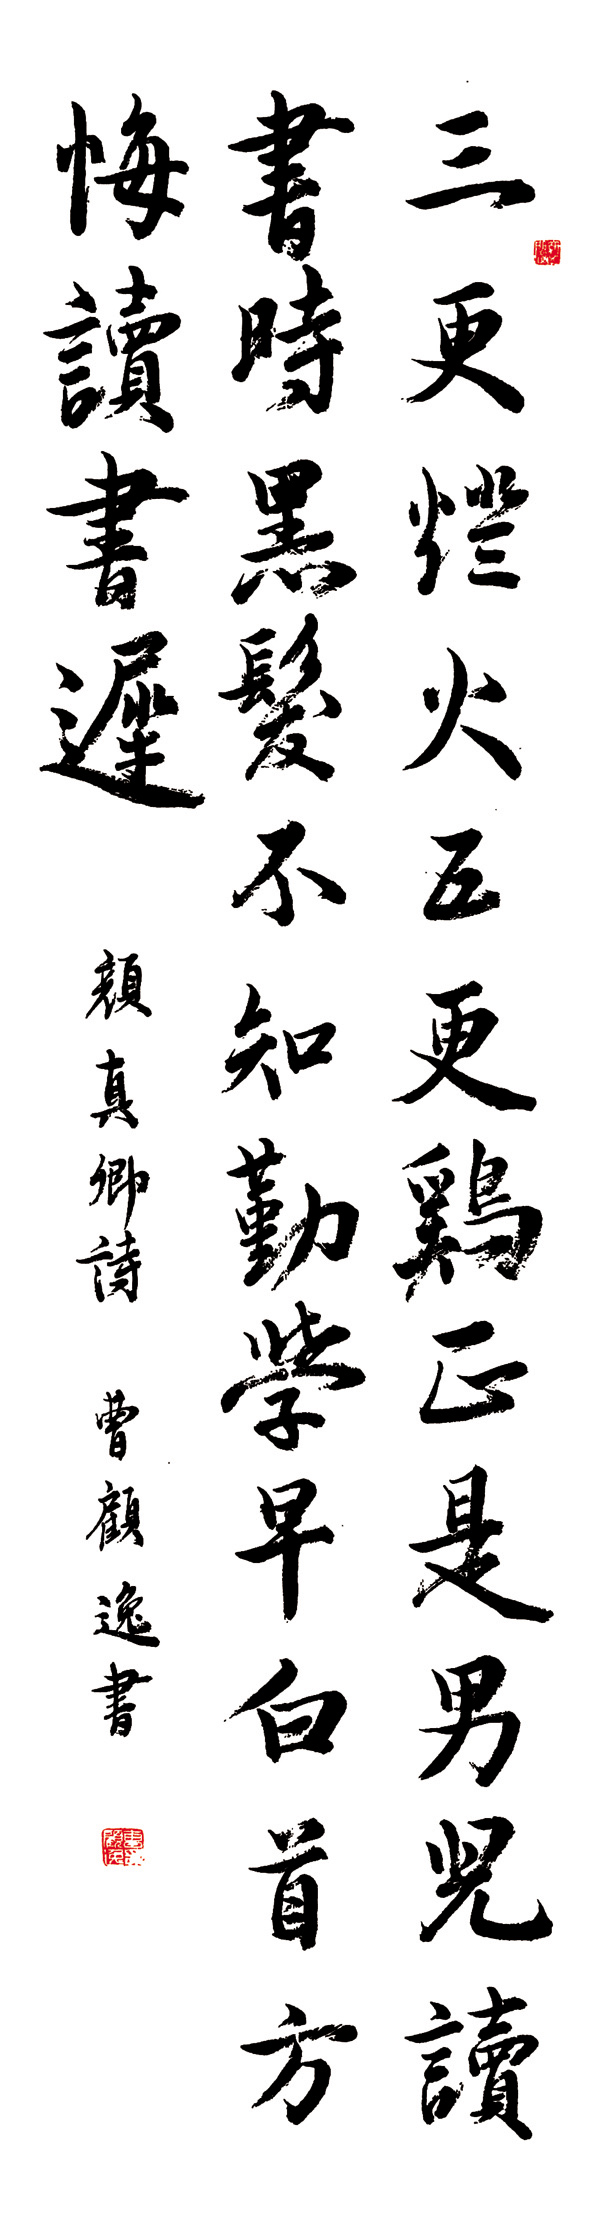 三更燈火五更鷄正是男兒讀
書時黑髮不知勤學早白首方
悔讀書遲
顔真卿詩 曹顧逸書